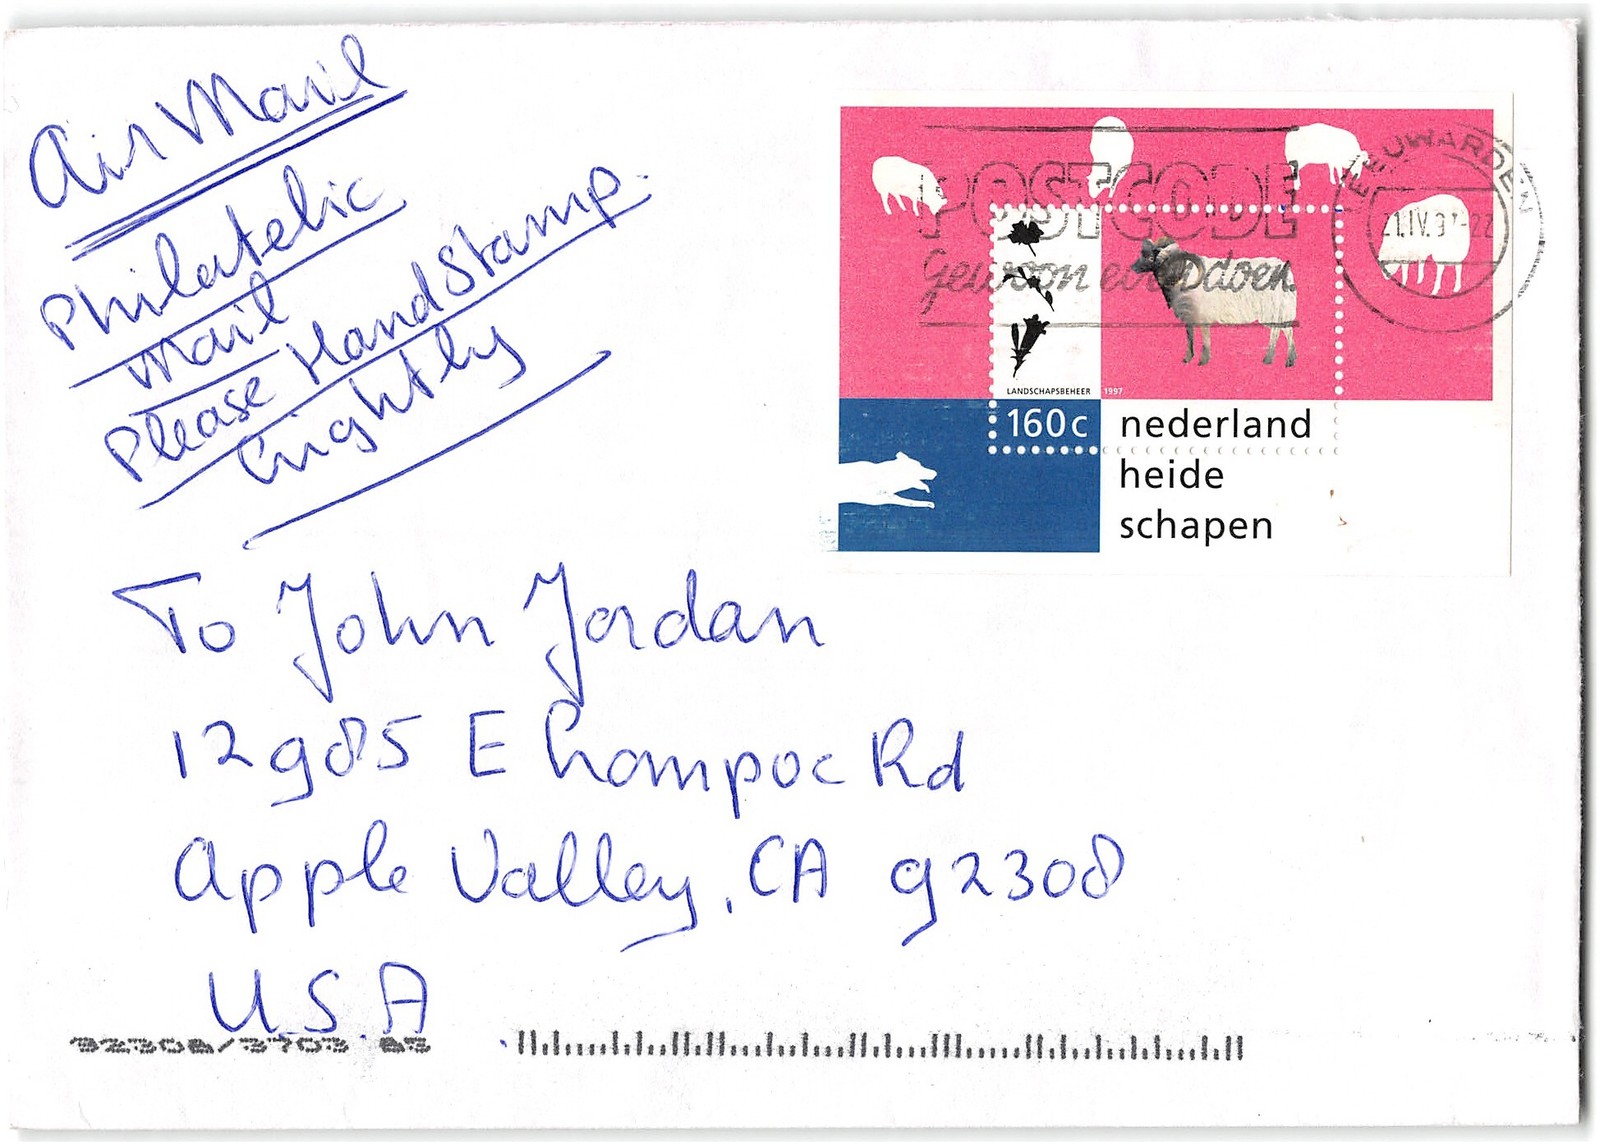 Air Mail
Philatelic
mail
Please Handstamp.
lightly
POSTCODE
Gewoon even doen.
LEEUWARDEN
21.IV.97-22
LANDSCHAPSBEHEER 1997
160 c
nederland
heide
schapen
To John Jordan
12985 E Lompoc Rd
Apple Valley, CA 92308
U.S.A
92308/3703 85